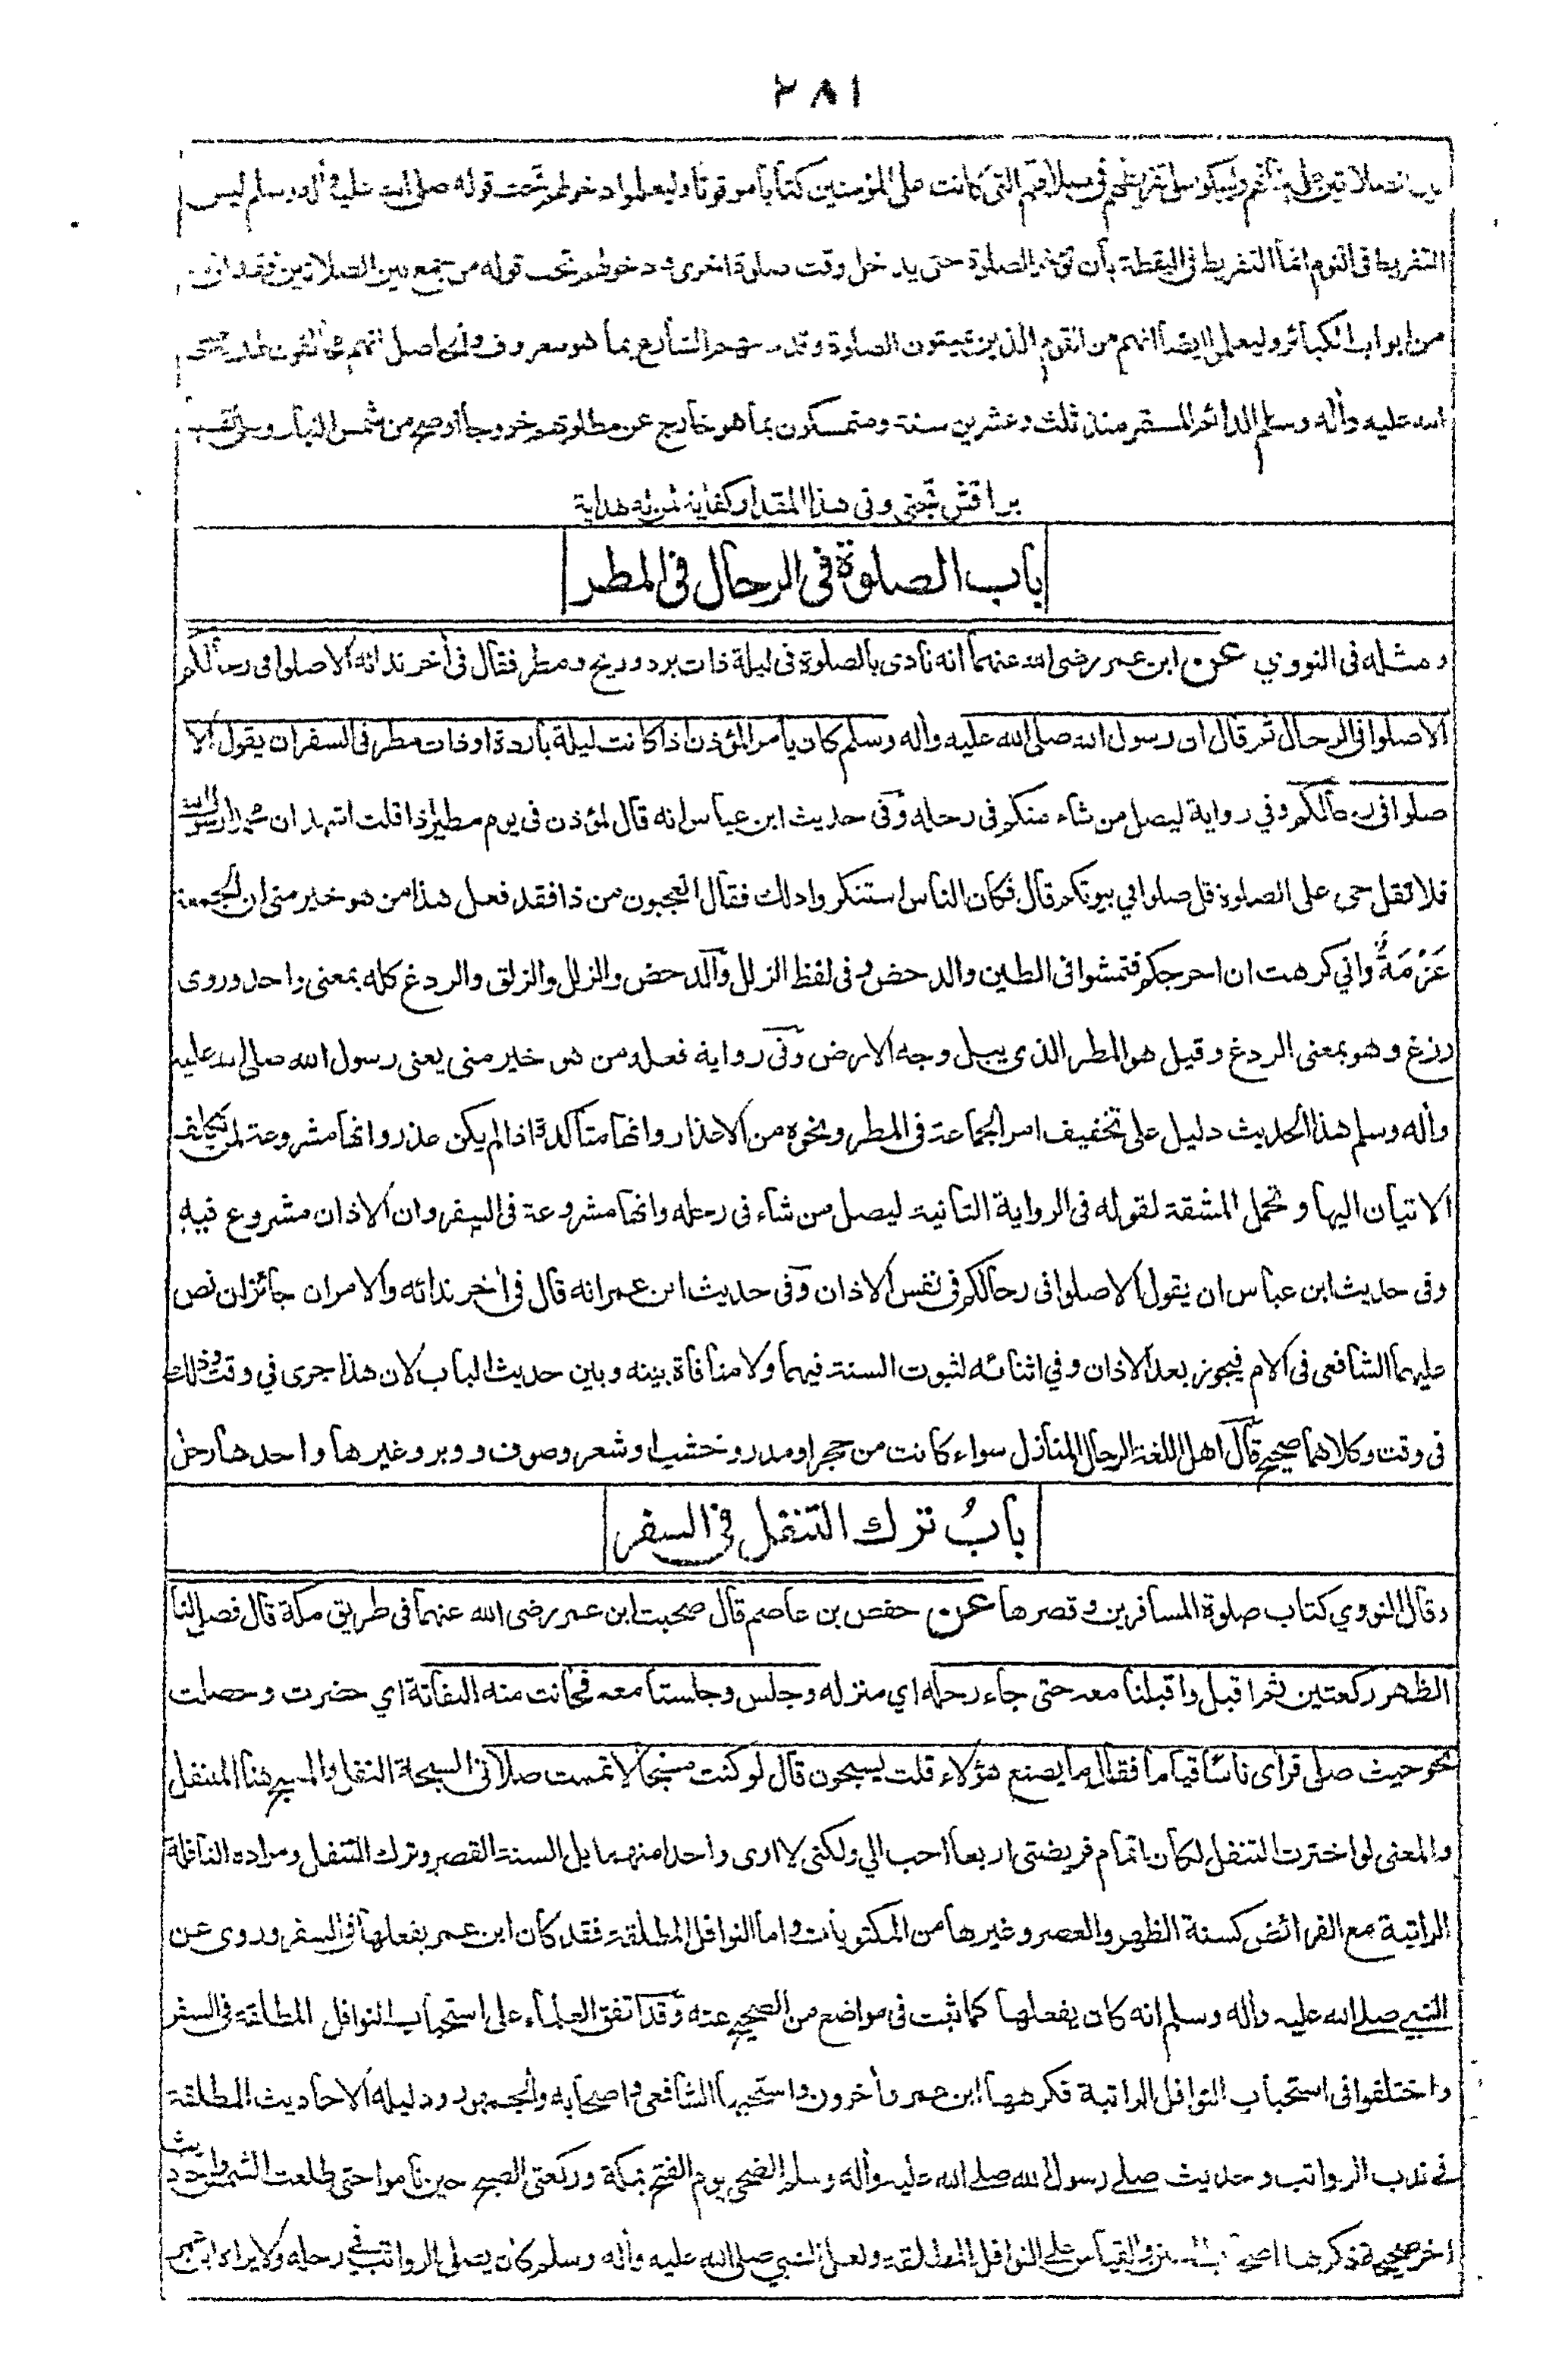 ٢٨١
صلاتين على التي كانت على المؤمنين كتابا موقوتا وليعلموا دخولهم تحت قوله صلى الله عليه وأله وسلم ليس
التفريط فى النوم انما التفريط فى اليقظة بأن تؤخر الصلوة حتى يدخل وقت صلوة اخرى ودخولهم تحب قوله من جمع بين الصلاتين فقد اتى
من ابواب الكبائر وليعلموا ايضا انهم من القوم الذين يميتون الصلوة وقد الشارع بما هو معروف
الله عليه وأله وسلم الدائم المستمر منذ ثلث وعشرين سنة ومتمسكون بما هو خارج عن مطلوبهم خروجا اوضح من شمس النهار وعلى نفسها
براقش تجنى وفى هذا المقدار كفاية لمن له هداية
باب الصلوة فى الرحال فى المطر
ومثله فى النووي عن ابن عمر رضى الله عنهما انه نادى بالصلوة فى ليلة ذات برد وريح ومطر فقال فى أخر ندائه ألا صلوا فى رحالكم
ألا صلوا فى الرحال ثم قال ان رسول الله صلى الله عليه وأله وسلم كان يأمر المؤذن اذا كانت ليلة باردة او ذات مطر فى السفر ان يقول ألا
صلوا فى رحالكم وفي رواية ليصل من شاء منكم فى رحله وفى حديث ابن عباس انه قال لمؤذن فى يوم مطير اذا قلت اشهد ان محمدا رسول الله
فلا تقل حى على الصلوة قل صلوا في بيوتكم قال فكان الناس استنكروا ذلك فقال اتعجبون من ذا فقد فعل هذا من هو خير منى ان الجمعة
عَزْمَةٌ واني كرهت ان احرجكم فتمشوا فى الطين والدحض وفى لفظ الزلل والدحض والزلل والزلق والردغ كله بمعنى واحد وروى
رزغ وهو بمعنى الردغ وقيل هو المطر الذي يبل وجه الارض وفى رواية فعله من هو خير منى يعنى رسول الله صلى الله عليه
وأله وسلم هذا الحديث دليل على تخفيف امر الجماعة فى المطر ونحوه من الاعذار وانها متأكدة اذا لم يكن عذر وانها مشروعة لمن تكلف
الاتيان اليها وتحمل المشقة لقوله فى الرواية الثانية ليصل من شاء فى رحله وانها مشروعة فى السفر وان الاذان مشروع فيه
وفى حديث ابن عباس ان يقول ألا صلوا فى رحالكم فى نفس الاذان وفى حديث ابن عمر انه قال فى أخر ندائه والامران جائزان نص
عليهما الشافعى فى الام فيجوز بعد الاذان وفي اثنائه لثبوت السنة فيهما ولا منافاة بينه وبين حديث الباب لان هذا جرى في وقت وذلك
فى وقت وكلاهما صحيح قال اهل اللغة الرحال المنازل سواء كانت من حجر او مدر وخشب او شعر وصوف ووبر وغيرها واحدها رحل
بابُ ترك التنفل فى السفر
وقال النووي كتاب صلوة المسافرين وقصرها عن حفص بن عاصم قال صحبت ابن عمر رضى الله عنهما فى طريق مكة قال فصلى لنا
الظهر ركعتين ثم اقبل واقبلنا معه حتى جاء رحله اي منزله وجلس وجلسنا معه فحانت منه التفاتة اي حضرت وحصلت
نحو حيث صلى فراى ناسا قياما فقال ما يصنع هؤلاء قلت يسبحون قال لو كنت مسبحا لاتممت صلاتى السبحة النفل والمسبح هنا المتنفل
والمعنى لو اخترت التنفل لكان اتمام فريضتى اربعا احب الي ولكنى لا ارى واحدا منهما بل السنة القصر وترك التنفل ومراده النافلة
الراتبة مع الفرائض كسنة الظهر والعصر وغيرها من المكتوبات واما النوافل المطلقة فقد كان ابن عمر يفعلها فى السفر وروى عن
النبي صلى الله عليه وأله وسلم انه كان يفعلها كما ثبت فى مواضع من الصحيح عنه وقد اتفق العلماء على استحباب النوافل المطلقة فى السفر
واختلفوا فى استحباب النوافل الراتبة فكرهها ابن عمر وأخرون واستحبها الشافعى واصحابه والجمهور ودليله الاحاديث المطلقة
فى ندب الرواتب وحديث صلى رسول الله صلى الله عليه وأله وسلم الضحى يوم الفتح بمكة وركعتى الصبح حين ناموا حتى طلعت الشمس واحاديث
اخر صحيحة ذكرها اصحاب السنن والقياس على النوافل المطلقة ولعل النبي صلى الله عليه وأله وسلم كان يصلى الرواتب فى رحله ولا يراه ابن عمر